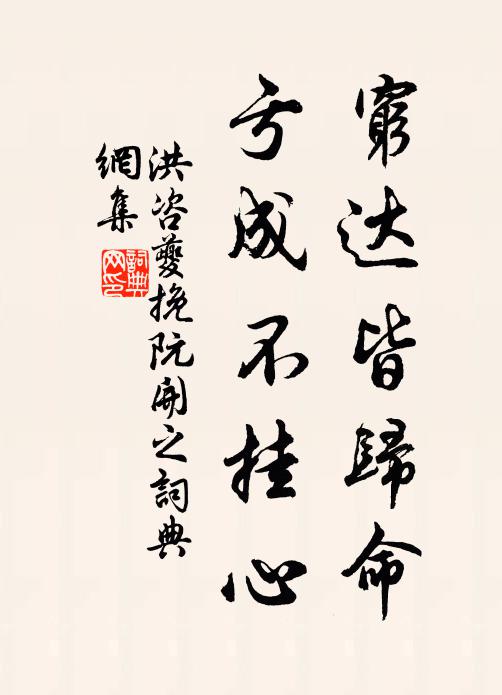 窮达皆歸命
亏成不挂心
洪咨夔挽阮開之詞典
網集
詞典
网印